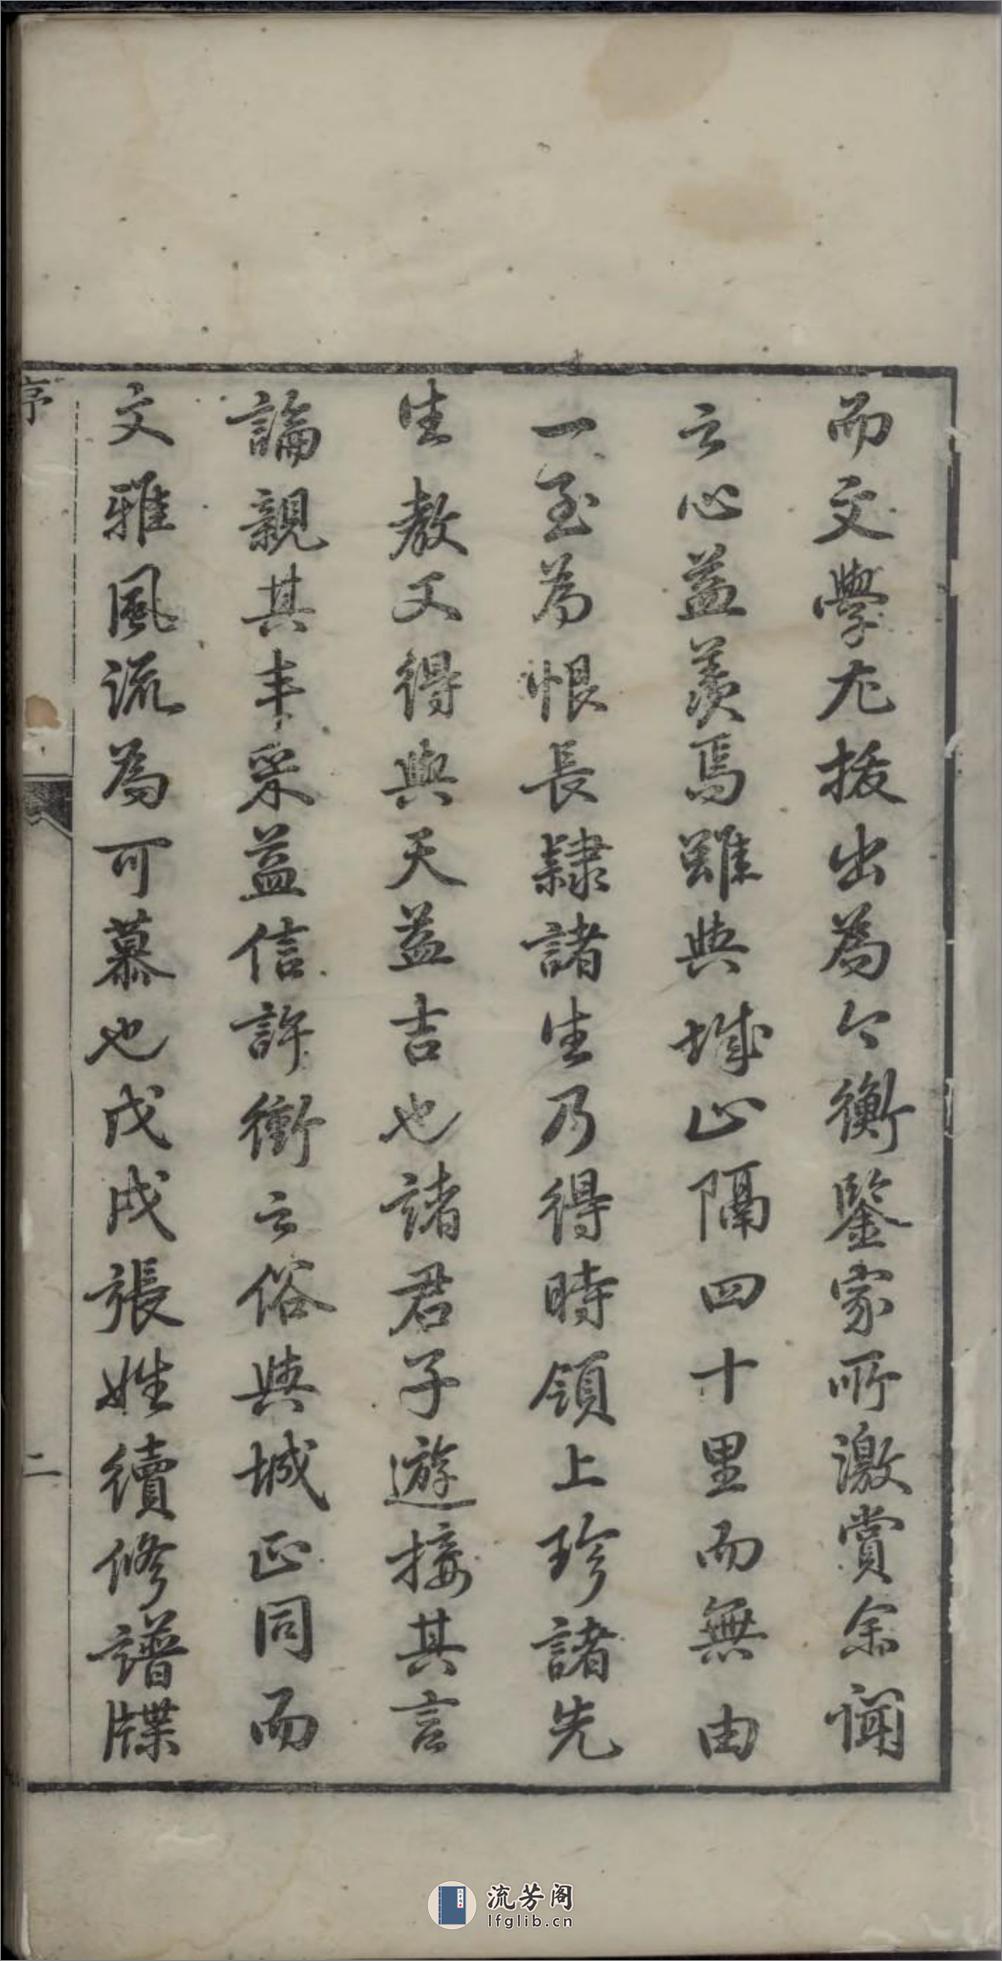 而文學尤拔出為今衡鑒家所激賞余聞
之心益羨焉雖與城止隔四十里而無由
一至為恨長隸諸生乃得時領上珍諸先
生教又得與天益吉也諸君子遊接其言
論親其丰采益信許衝之俗與城正同而
文雅風流為可慕也戊戌張姓續修譜牒
序
二
流芳阁
lfglib.cn